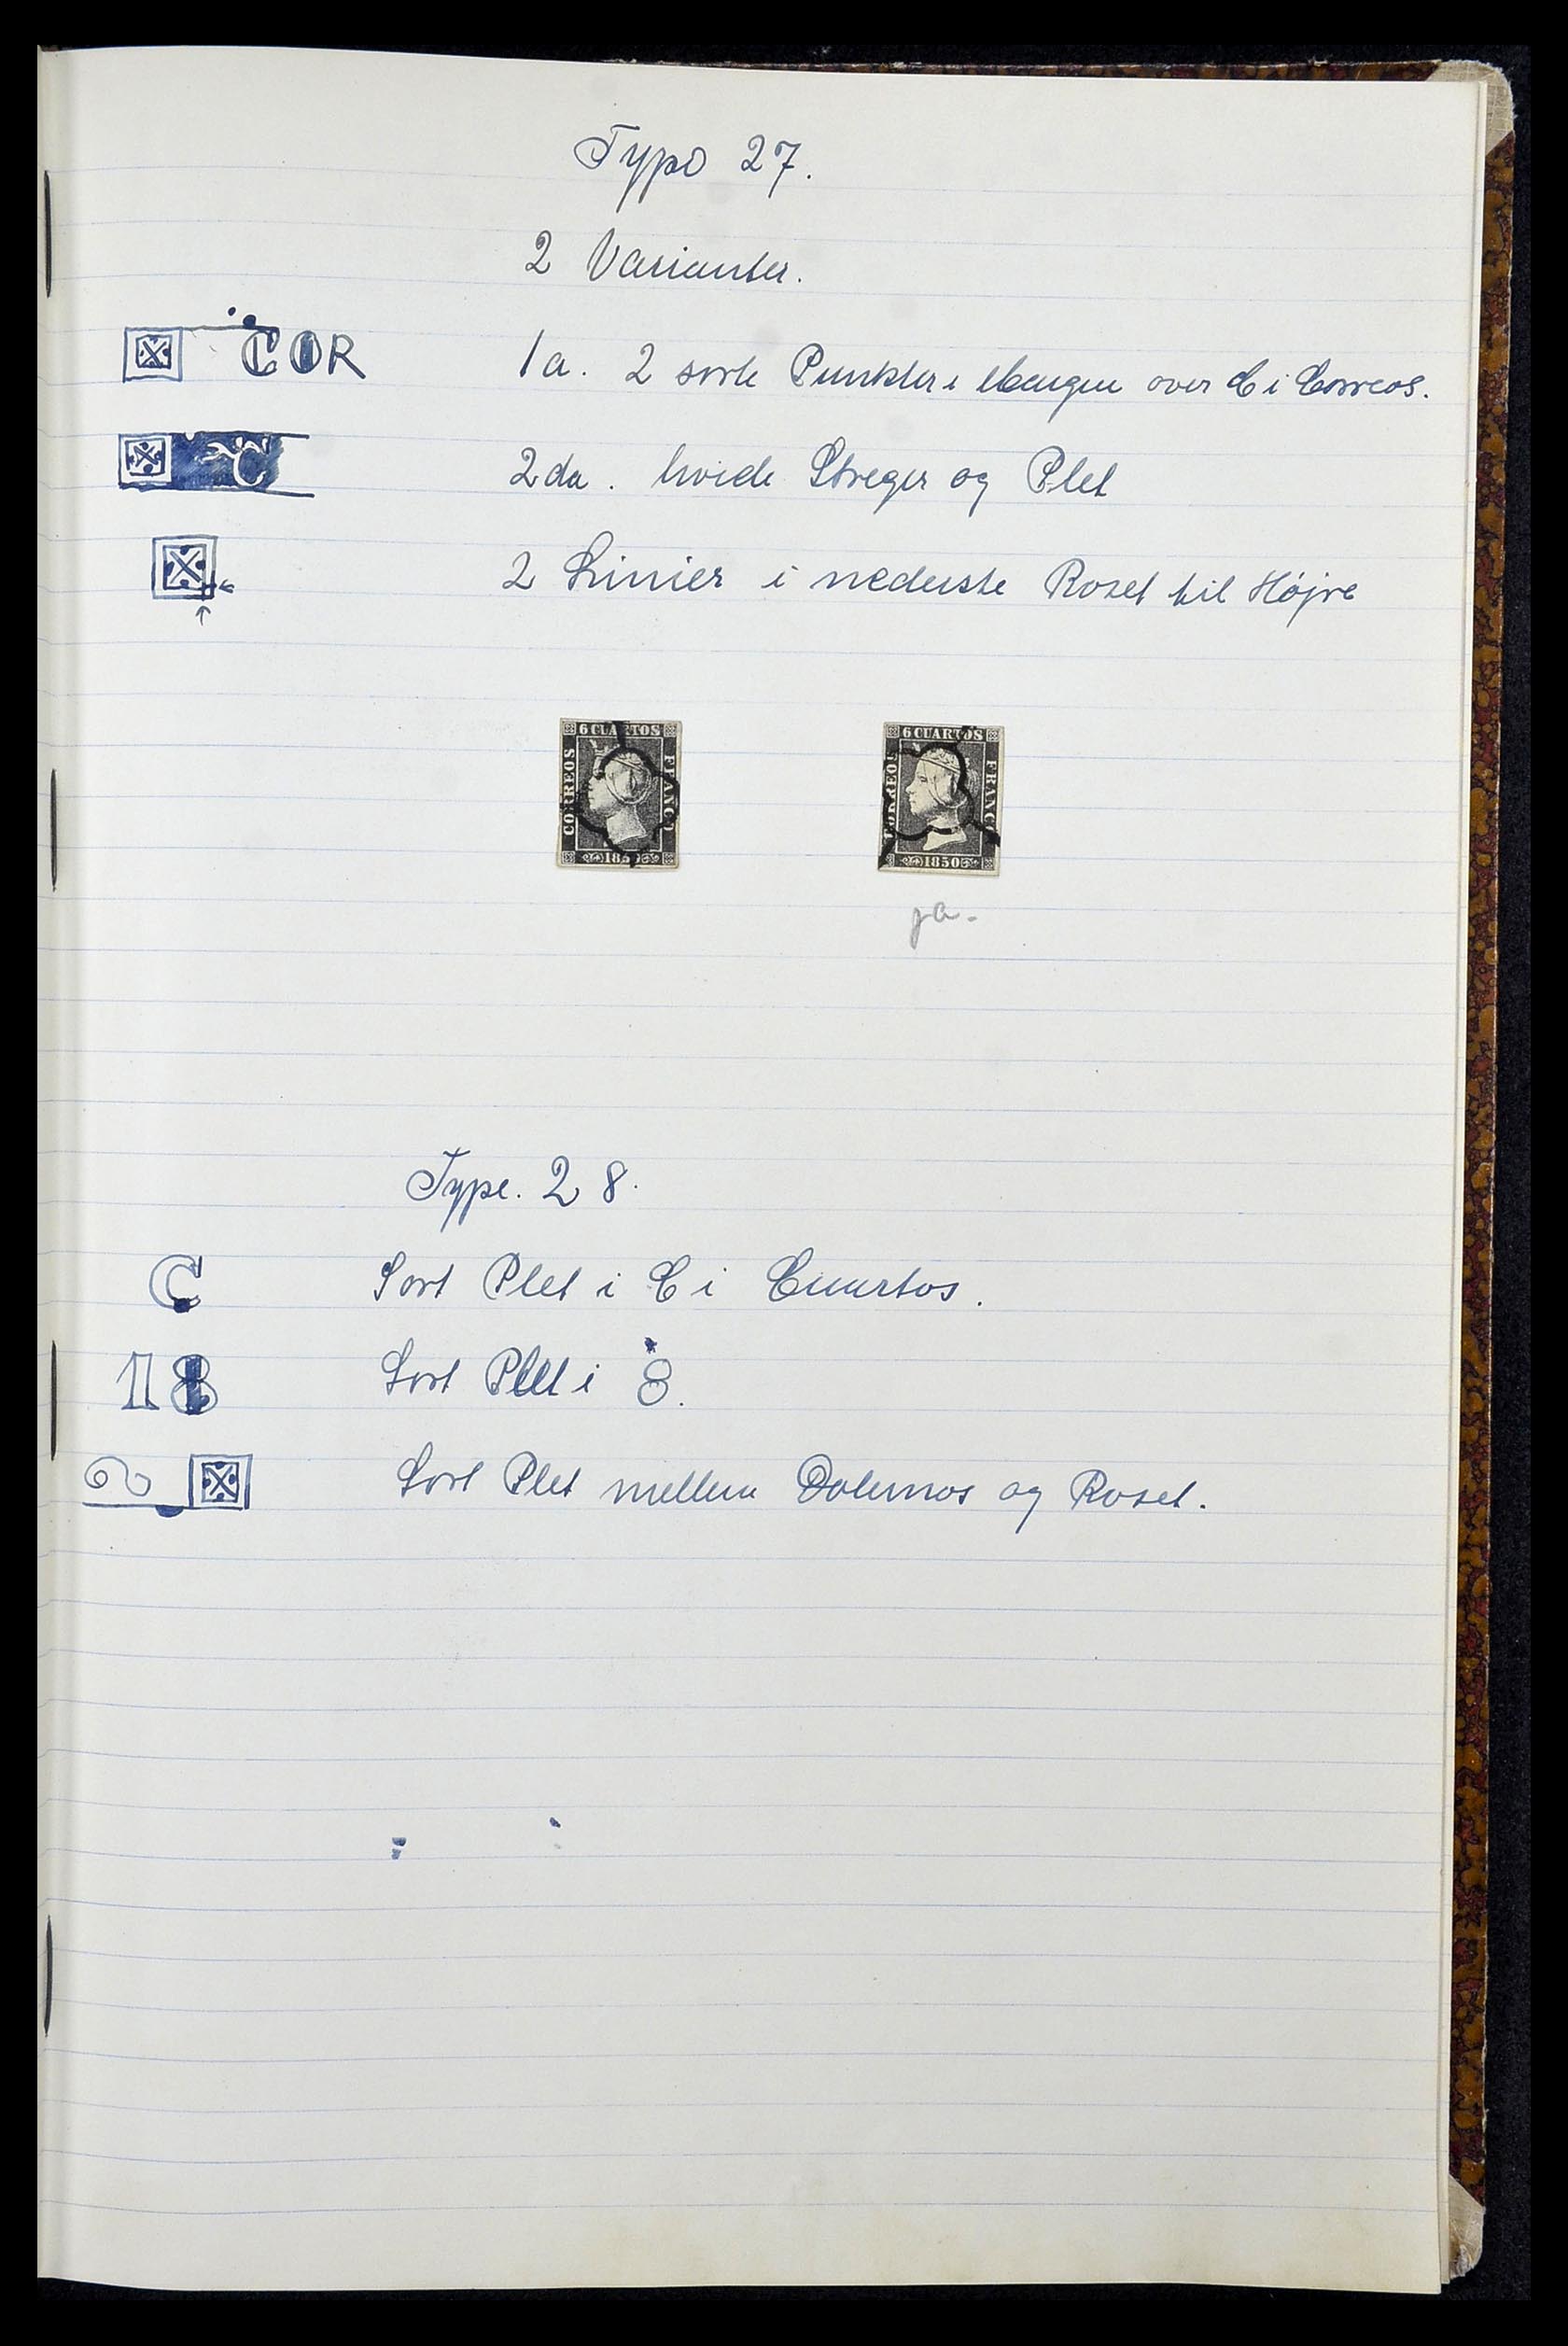 Type 27.
2 Varianter.
COR 1a. 2 sorte Punkter i over C i Correos.
C 2da. hvide Streger og Plet
2 Linier i nederste Roset til Højre
6 CUARTOS
CORREOS
FRANCO
1850
6 CUARTOS
CORREOS
FRANCO
1850
ja.
Type. 28.
C Sort Plet i C i Cuartos.
18 Sort Plet i 8.
Sort Plet mellem og Roset.